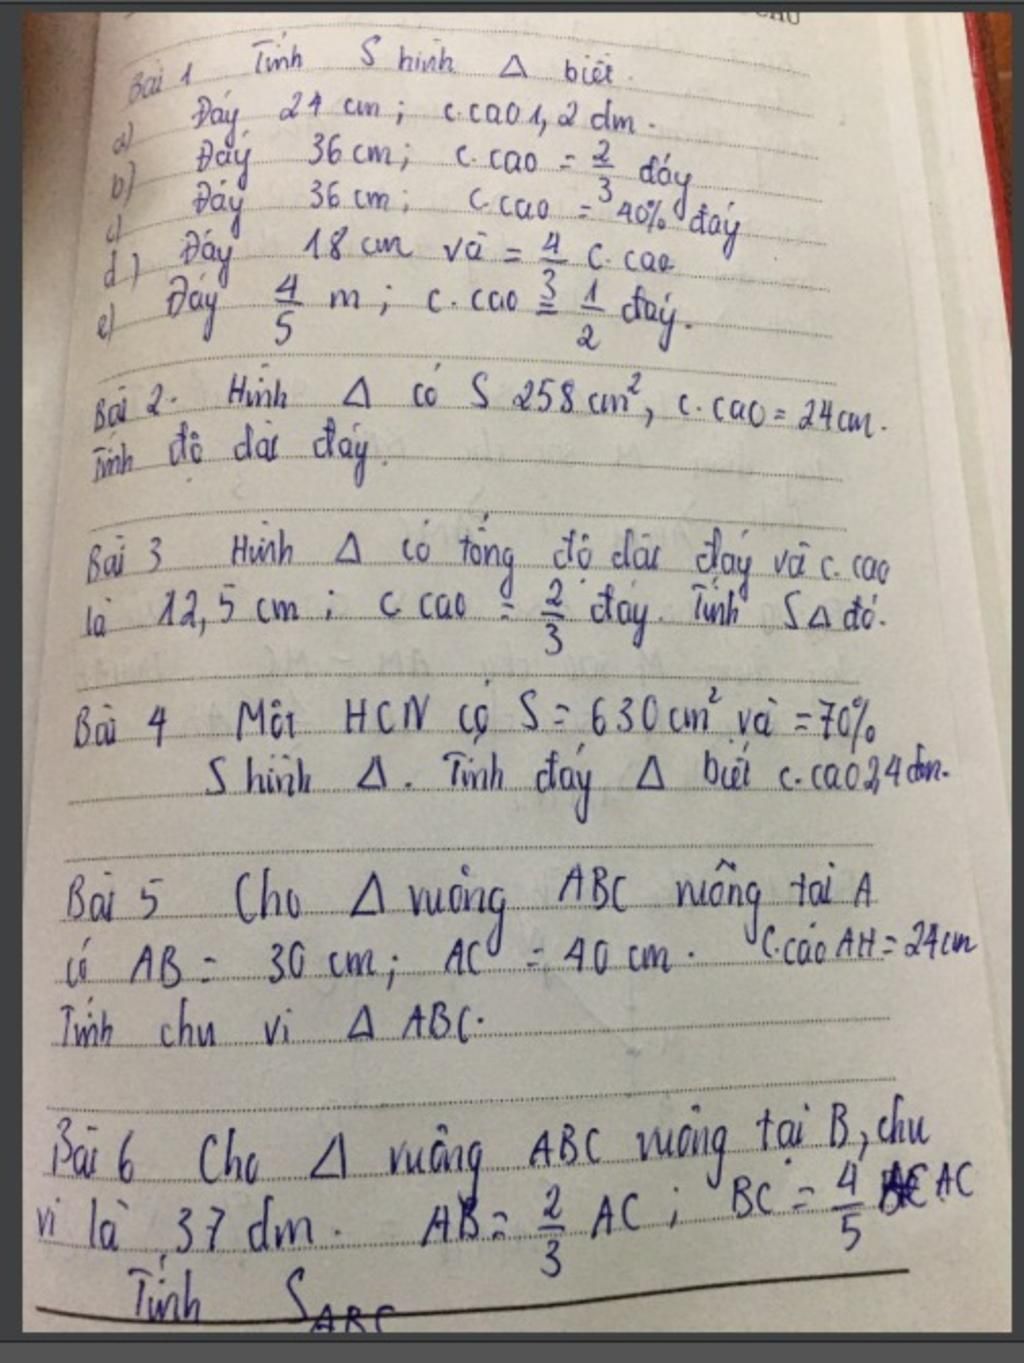 Bài 1 Tính S hình Δ biết.
a) Đáy 24 cm; c.cao 1,2 dm.
b) Đáy 36 cm; c.cao = 2/3 đáy
c) Đáy 36 cm; c.cao = 40% đáy
d) Đáy 18 cm và = 4/3 c.cao
e) Đáy 4/5 m; c.cao = 1/2 đáy.
Bài 2. Hình Δ có S 258 cm², c.cao = 24 cm.
Tính độ dài đáy.
Bài 3 Hình Δ có tổng độ dài đáy và c.cao
là 12,5 cm; c.cao = 2/3 đáy. Tính SΔ đó.
Bài 4 Một HCN có S = 630 cm² và = 70%
S hình Δ. Tính đáy Δ biết c.cao 2,4 dm.
Bài 5 Cho Δ vuông ABC vuông tại A
có AB = 30 cm; AC = 40 cm. C.cao AH = 24 cm
Tính chu vi Δ ABC.
Bài 6 Cho Δ vuông ABC vuông tại B, chu
vi là 37 dm. AB = 2/3 AC; BC = 4/5 AC
Tính S ABC